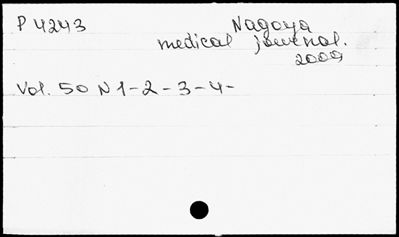 P 4243
Nagoya
medical journal.
2009
Vol. 50 N 1-2-3-4-